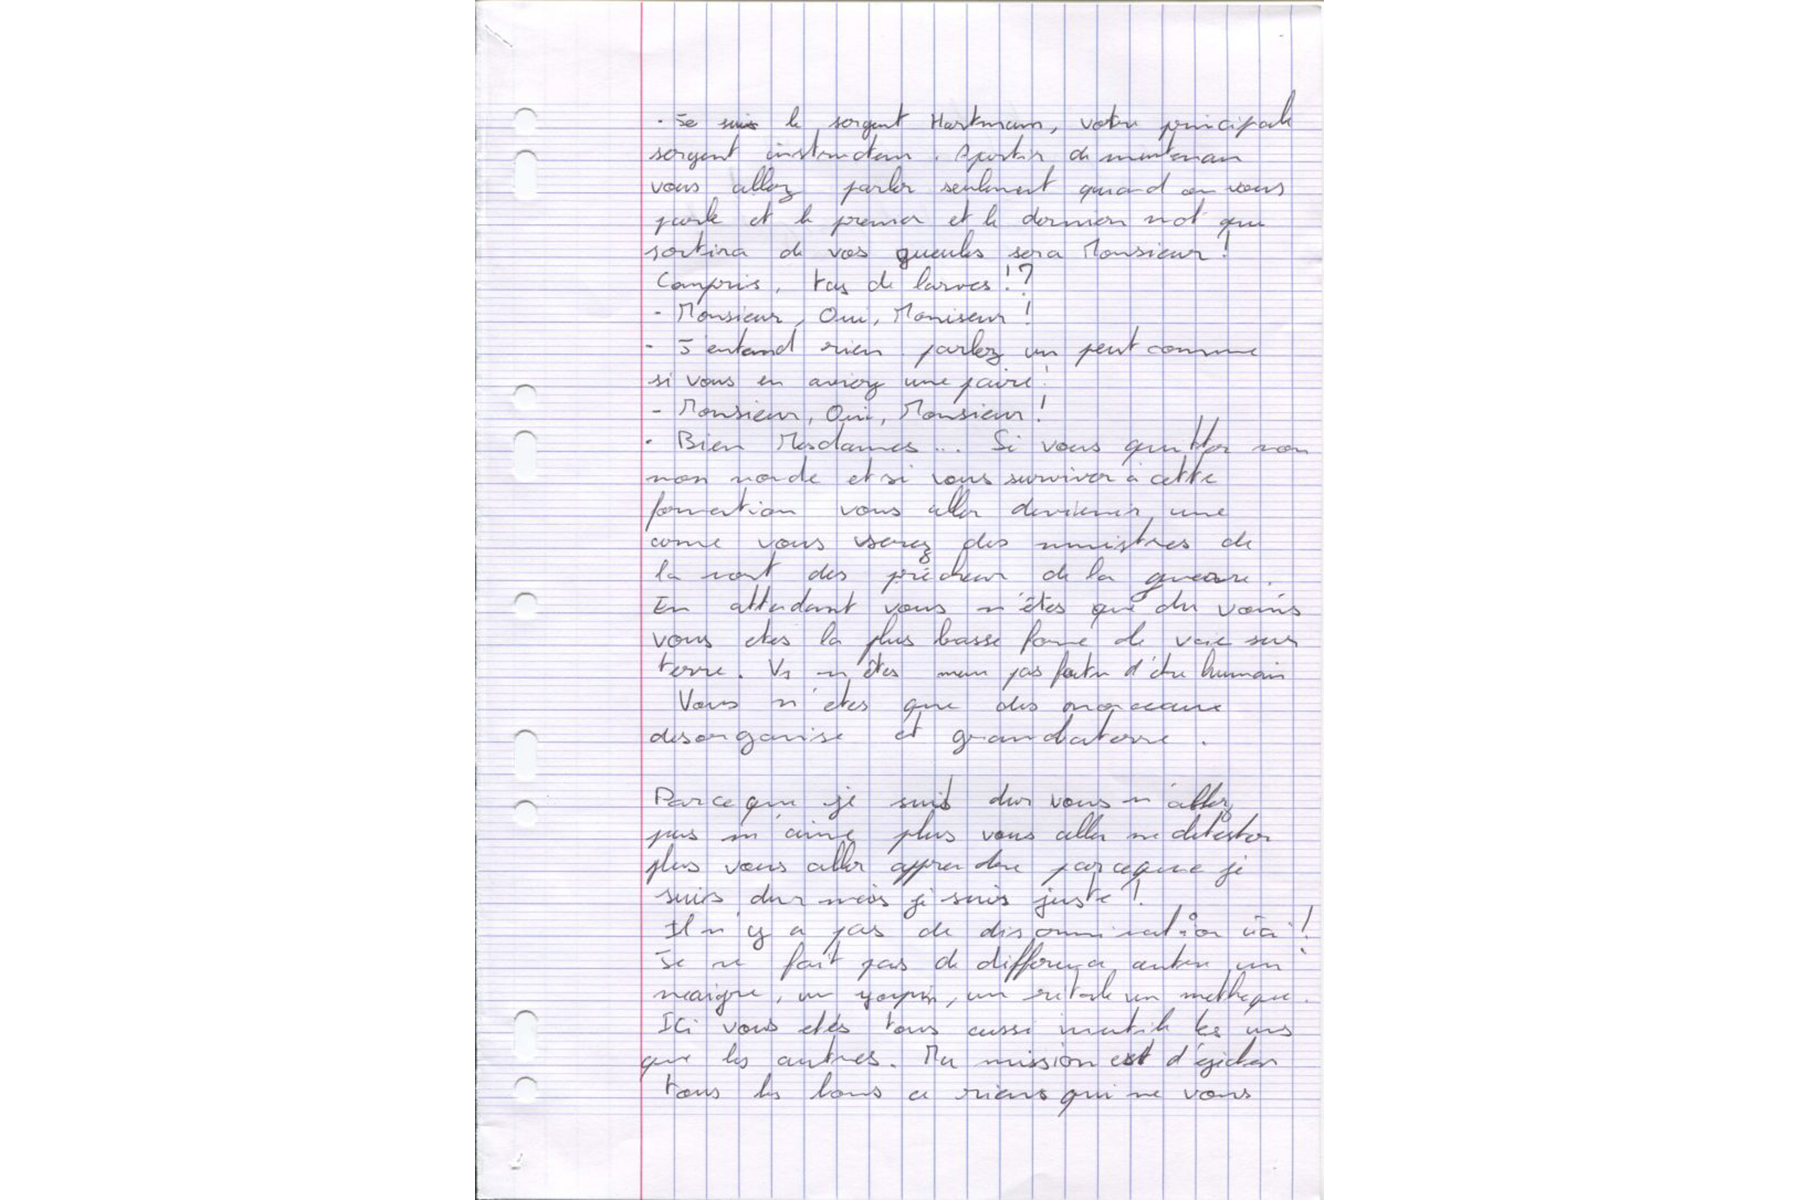 - Je suis le sergent Hartmann, votre principale
sergent instructeur. Apartir de maintenan
vous allez parler seulement quand on vous
parle et le premier et le dernier mot qui
sortira de vos gueules sera Monsieur !
Compris, tas de larves !?
- Monsieur, Oui, Moniseur !
- J'entend rien parlez un peut comme
si vous en aviez une paire !
- Monsieur, Oui, Monsieur !
- Bien Mesdames... Si vous quitter mon
mon monde et si vous surviver à cette
formation vous aller deviendr une
arme vous serez des ministres de
la mort des prêcheur de la guerre.
En attendant vous n'êtes que du vomis
vous etes la plus basse forme de vie sur
terre. Vs n'êtes mem pas foutu d'être humain
Vous n'etes que des morceaux
desorganise et
Parceque je suis dur vous n'allez
pas m'aime plus vous aller me detester
plus vous aller apprendre parceque je
suis dur mais je suis juste !
Il n'y a pas de discrimination ici !
Je ne fait pas de difference entre un
neaigre, un youpin, un ritale un metheque.
Ici vous etes tous aussi inutile les uns
que les autres. Ma mission est d'ejecter
tous les bons a riens qui ne vous